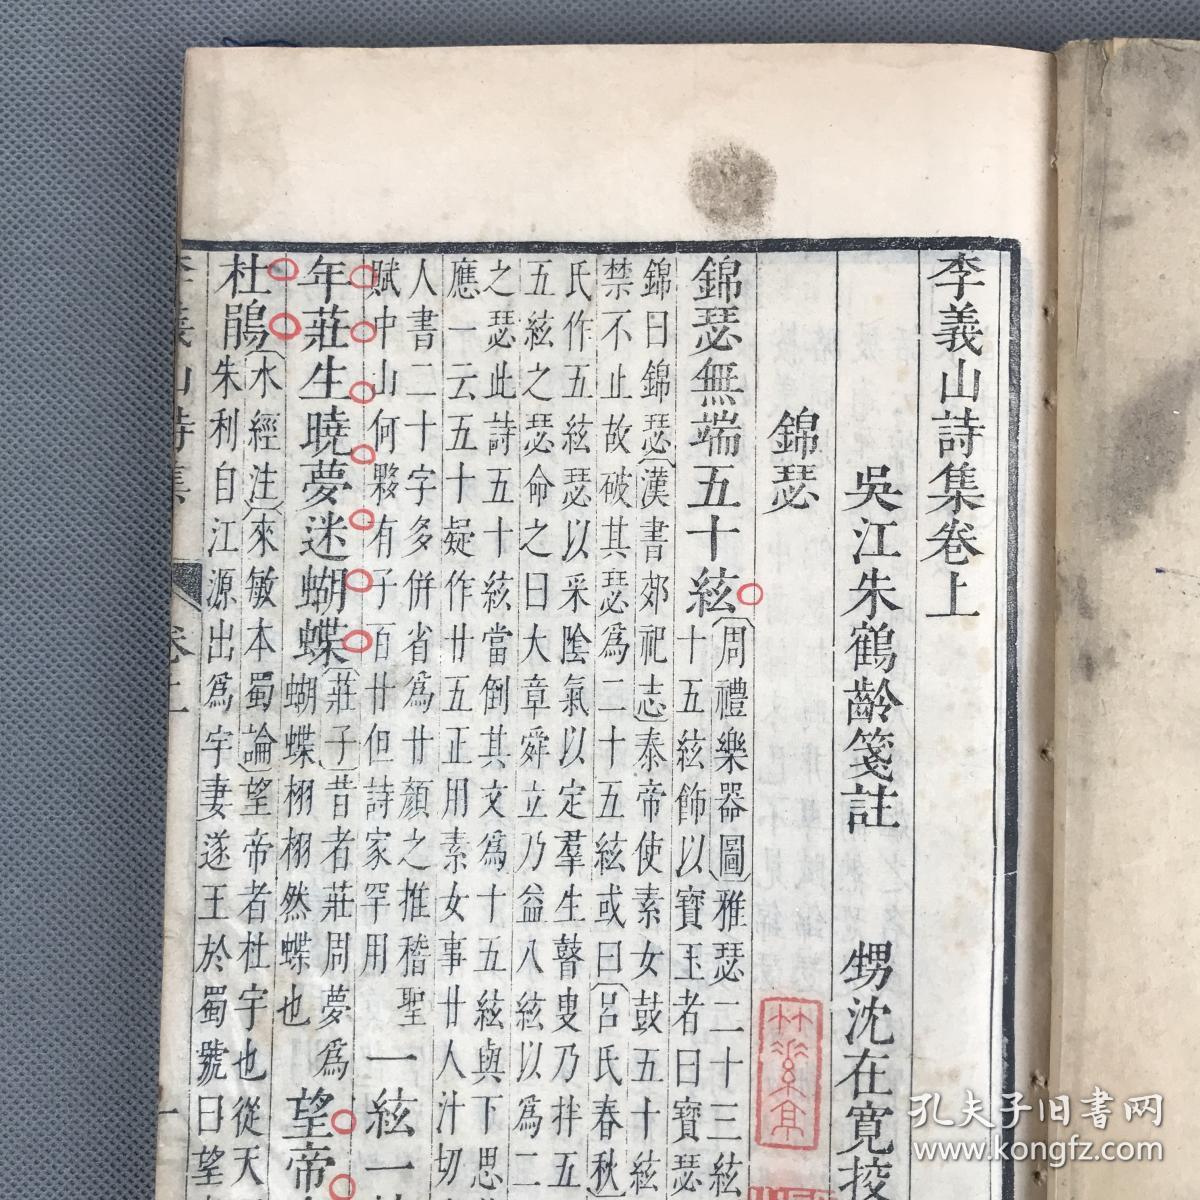 李義山詩集卷上
吳江朱鶴齡箋註　甥沈在寛挍
錦瑟
錦瑟無端五十絃
周禮樂器圖雅瑟二十三絃
十五絃飾以寶玉者曰寶瑟
錦曰錦瑟漢書郊祀志泰帝使素女鼓五十絃
禁不止故破其瑟爲二十五絃或曰呂氏春秋
氏作五絃瑟以采陰氣以定羣生瞽叟乃拌五
五絃之瑟命之曰大章舜立乃益八絃以爲二
之瑟此詩五十絃當倒其文爲十五絃與下思
應一云五十疑作廿五正用素女事廿人汁切
人書二十字多併省爲廿顏之推稽聖
賦中山何夥有子百廿但詩家罕用
一絃一
年莊生曉夢迷蝴蝶
莊子昔者莊周夢爲
蝴蝶栩栩然蝶也
望帝
杜鵑
水經注來敏本蜀論望帝者杜宇也從天
朱利自江源出爲宇妻遂王於蜀號曰望
李義山詩集
卷上
一
竹素亭
孔夫子旧書网
www.kongfz.com